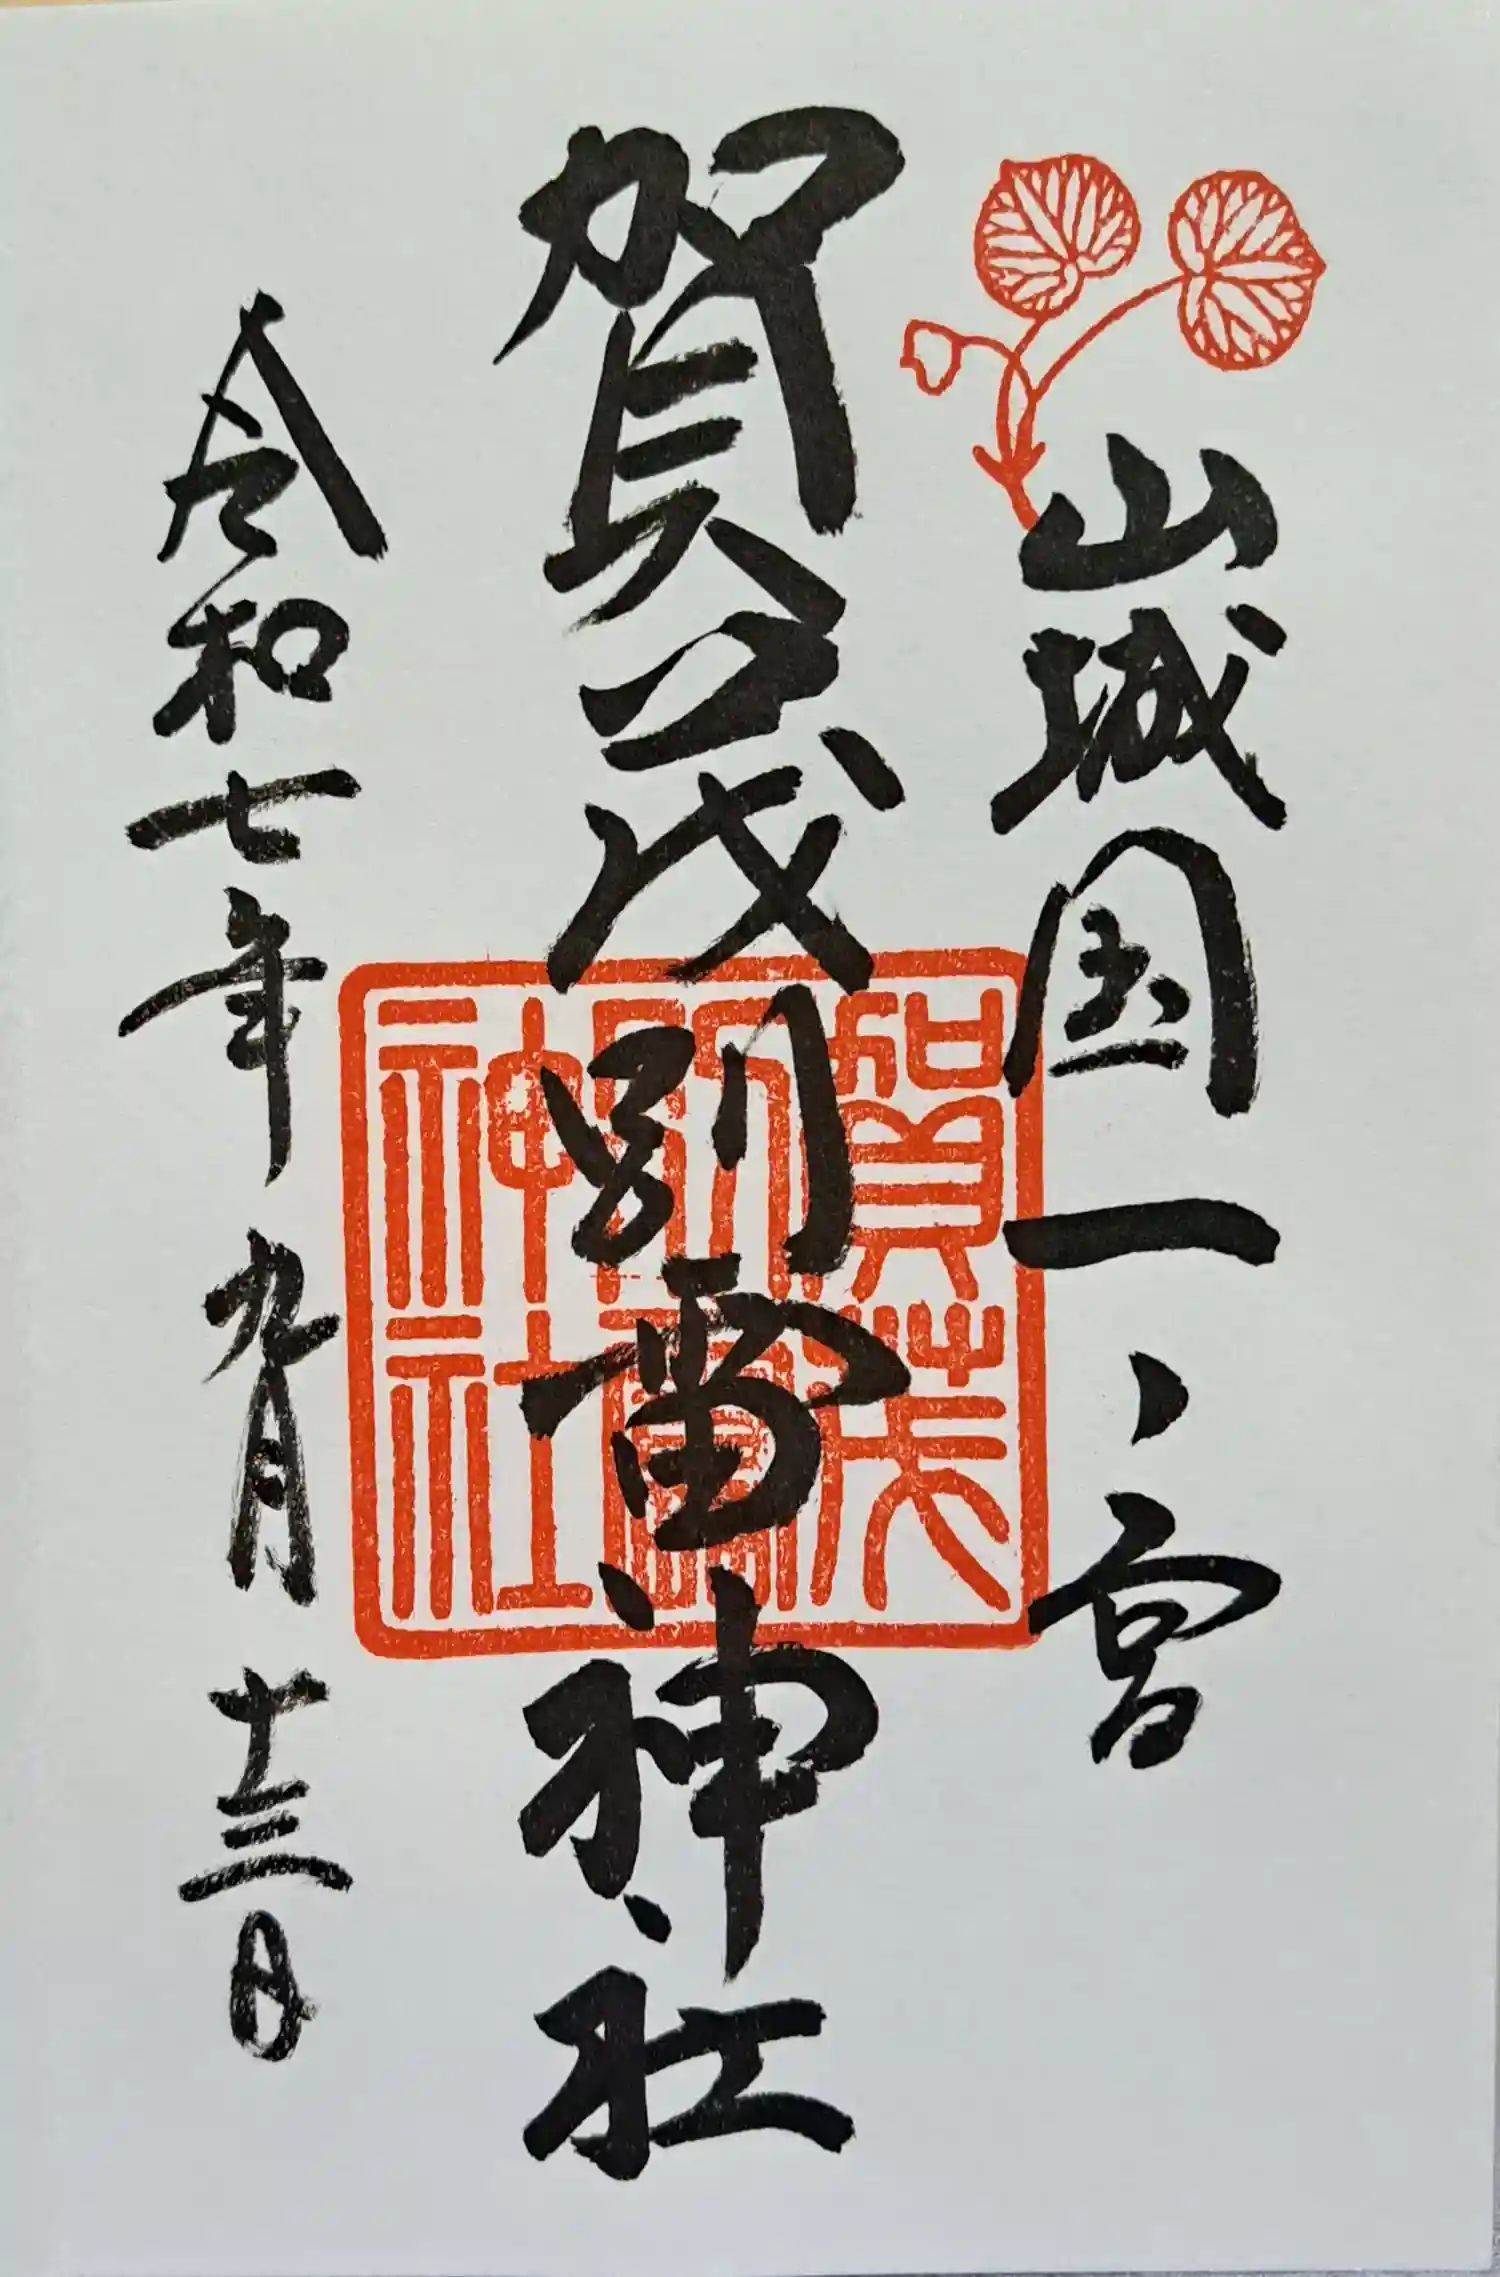 山城国一、宮
賀茂別雷神社
賀茂別雷神社
令和七年 九月 十三日